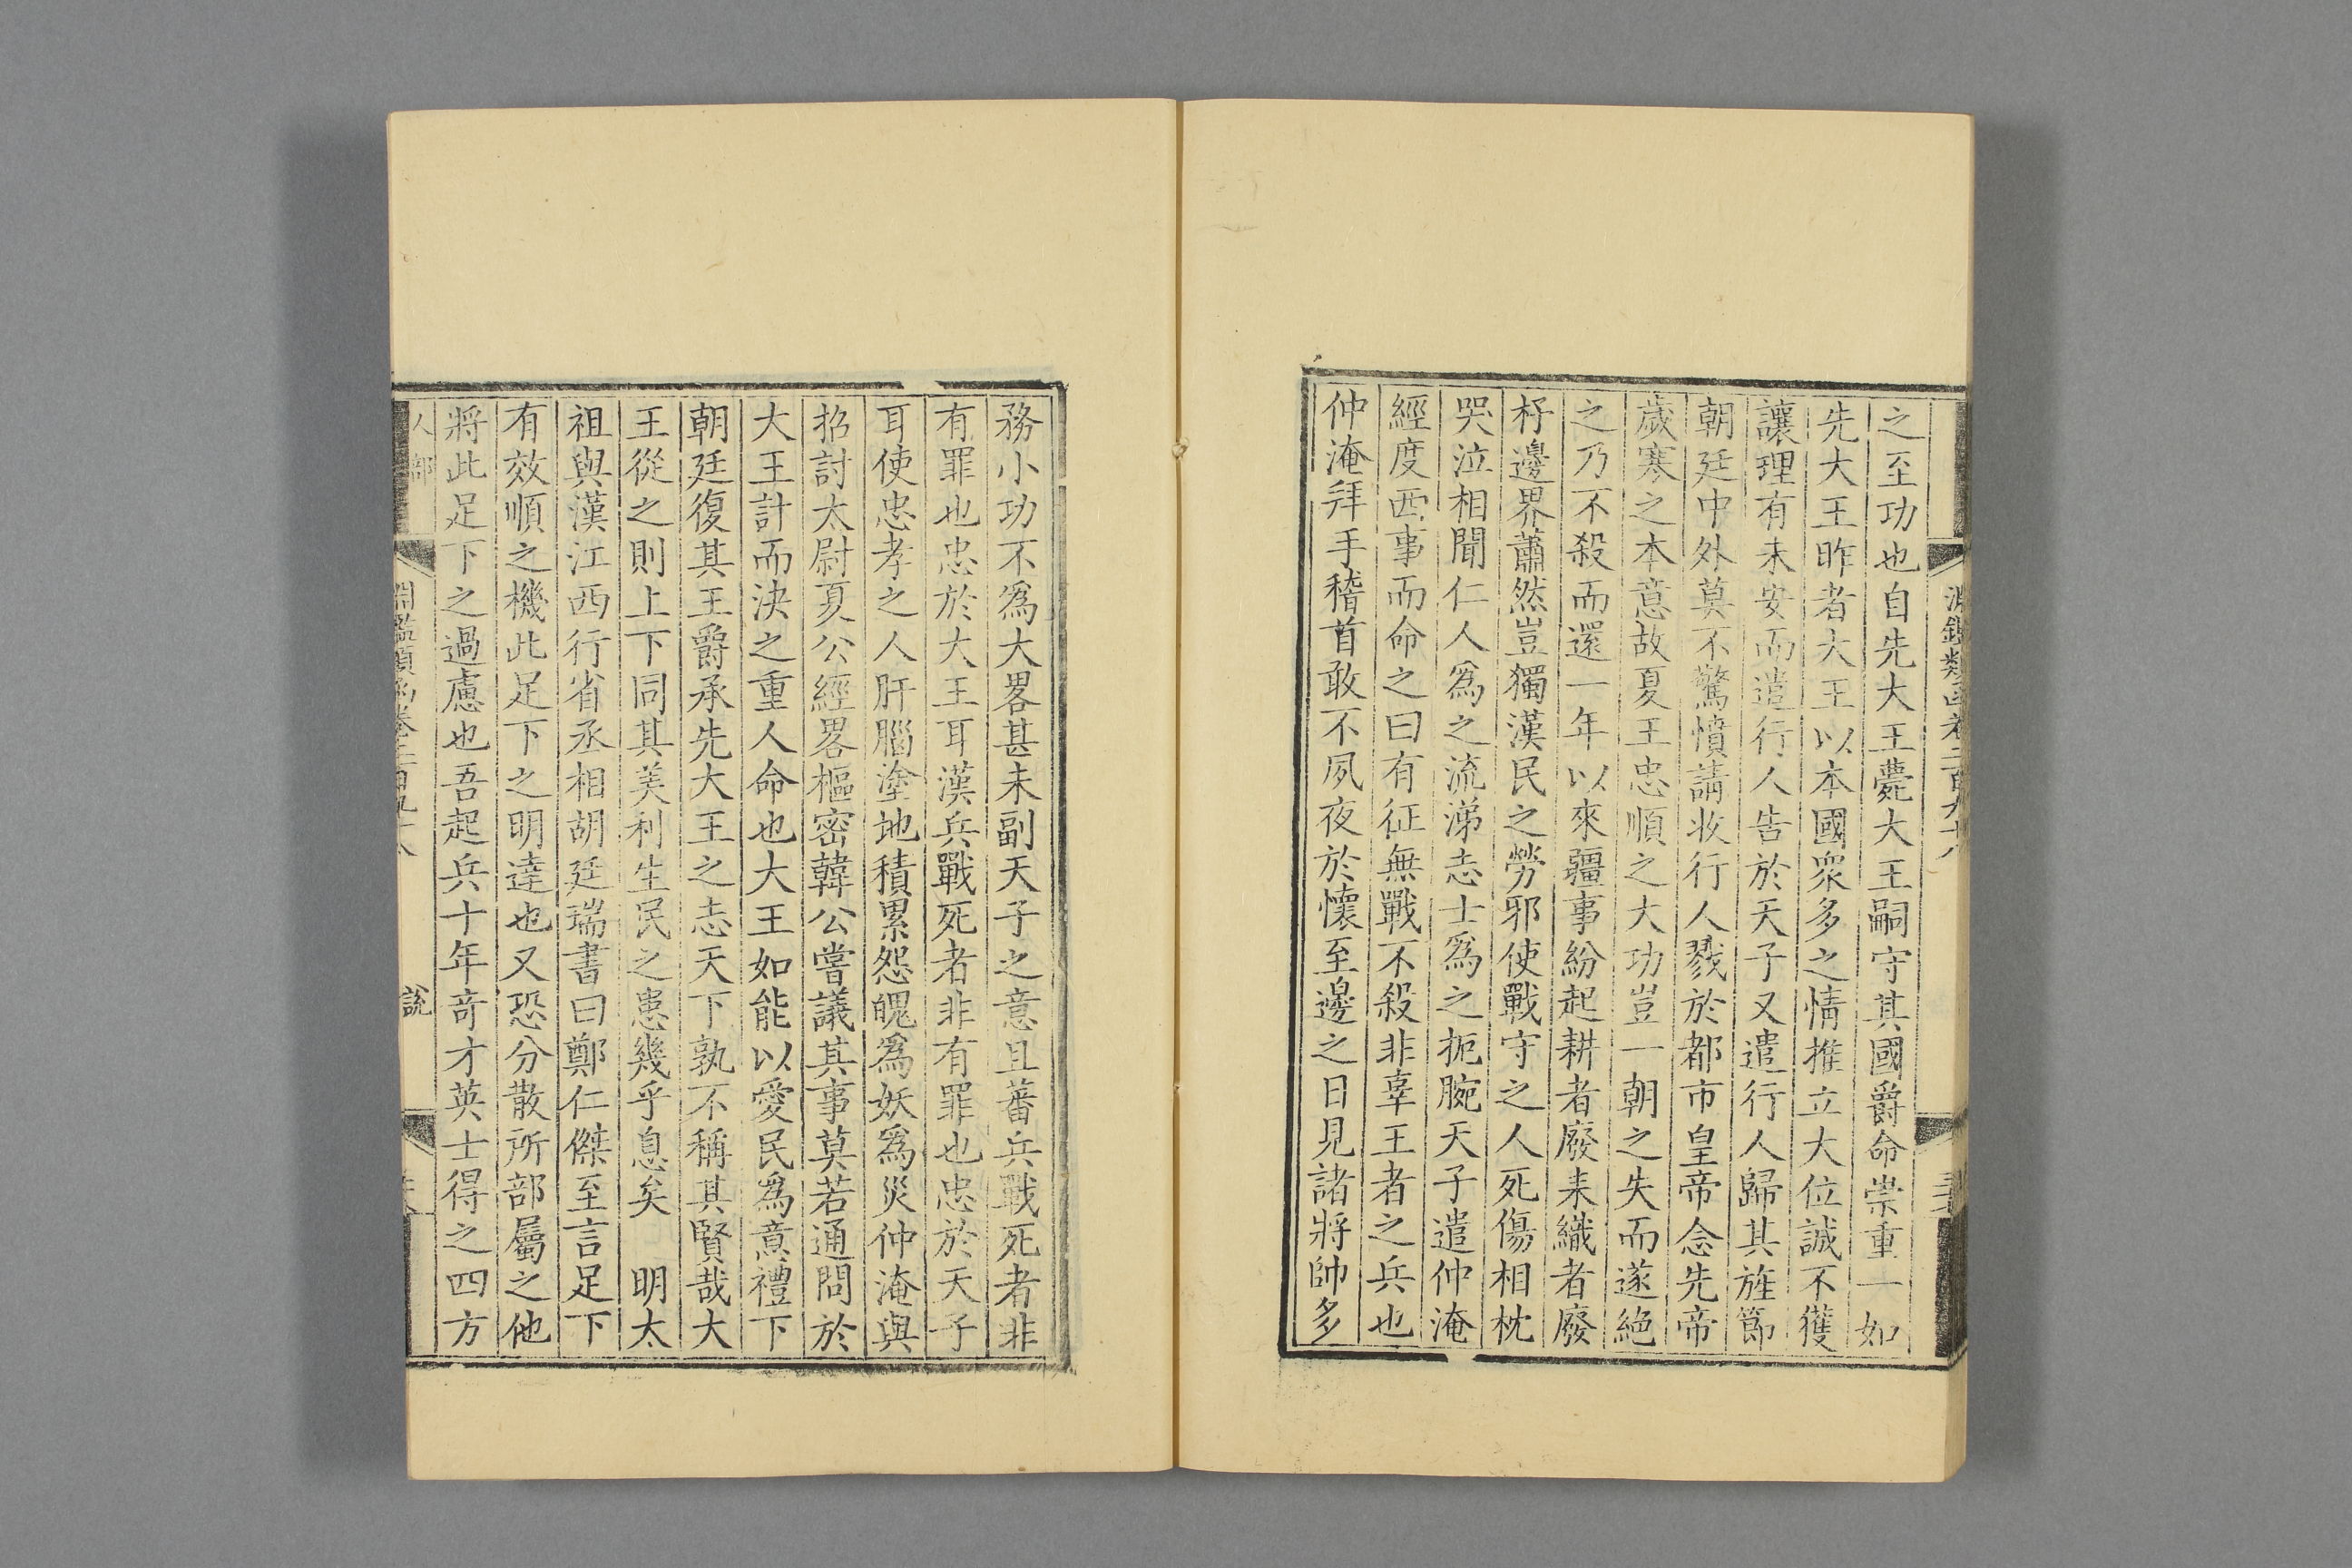 淵鑑類函卷二百九十八
之至功也自先大王薨大王嗣守其國爵命崇重一如
先大王昨者大王以本國衆多之情推立大位誠不獲
讓理有未安而遣行人告於天子又遣行人歸其旌節
朝廷中外莫不驚憤請收行人戮於都市皇帝念先帝
歲寒之本意故夏王忠順之大功豈一朝之失而遂絕
之乃不殺而還一年以來疆事紛起耕者廢耒織者廢
杼邊界蕭然豈獨漢民之勞邪使戰守之人死傷相枕
哭泣相聞仁人爲之流涕志士爲之扼腕天子遣仲淹
經度西事而命之曰有征無戰不殺非辜王者之兵也
仲淹拜手稽首敢不夙夜於懷至邊之日見諸將帥多
務小功不爲大畧甚未副天子之意且蕃兵戰死者非
有罪也忠於大王耳漢兵戰死者非有罪也忠於天子
耳使忠孝之人肝腦塗地積累怨魄爲妖爲災仲淹與
招討太尉夏公經畧樞密韓公嘗議其事莫若通問於
大王計而決之重人命也大王如能以愛民爲意禮下
朝廷復其王爵承先大王之志天下孰不稱其賢哉大
王從之則上下同其美利生民之患幾乎息矣　明太
祖與漢江西行省丞相胡廷瑞書曰鄭仁傑至言足下
有效順之機此足下之明達也又恐分散所部屬之他
將此足下之過慮也吾起兵十年竒才英士得之四方
人部
淵鑑類函卷二百九十八
說